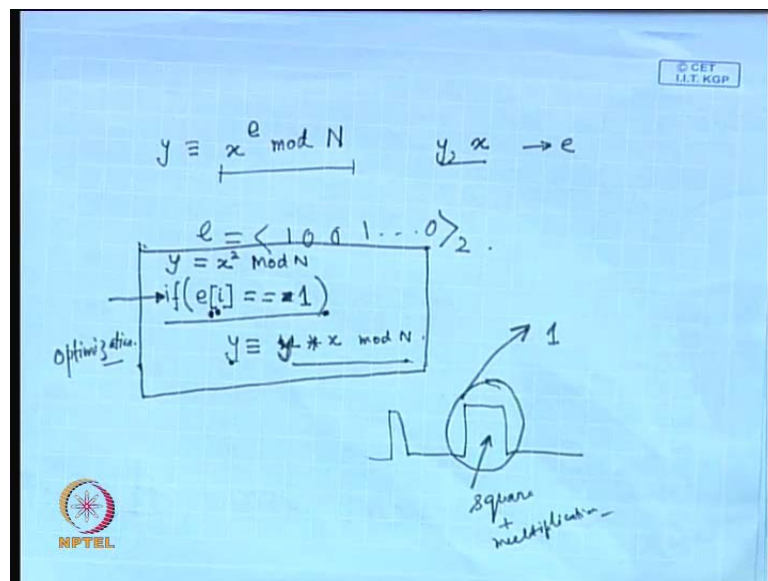 © CET
I.I.T. KGP
y ≡ x^e mod N    y, x → e
e = < 1 0 0 1 . . . 0 >₂ .
y = x² mod N
if(e[i] == 1)
optimization
y ≡ y * x mod N.
1
square
+
multiplication
NPTEL